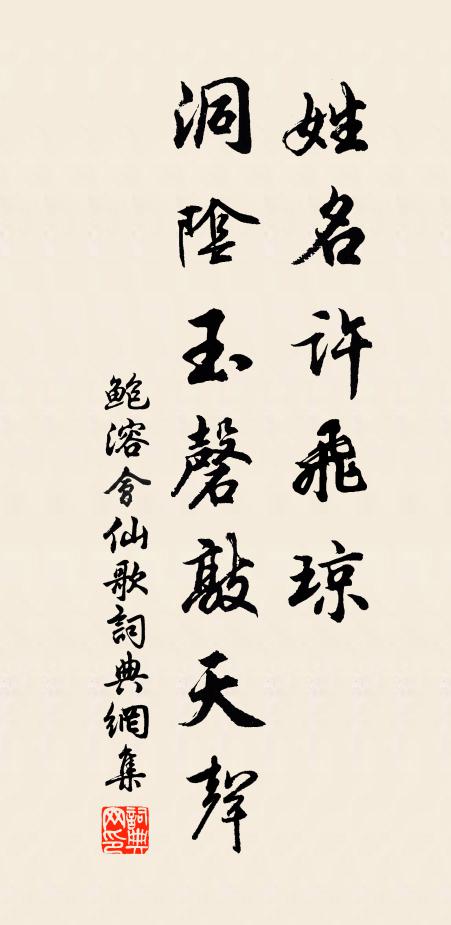 姓名許飛琼
洞陰玉磬敲天聲
鲍溶會仙歌詞典網集
詞典网印